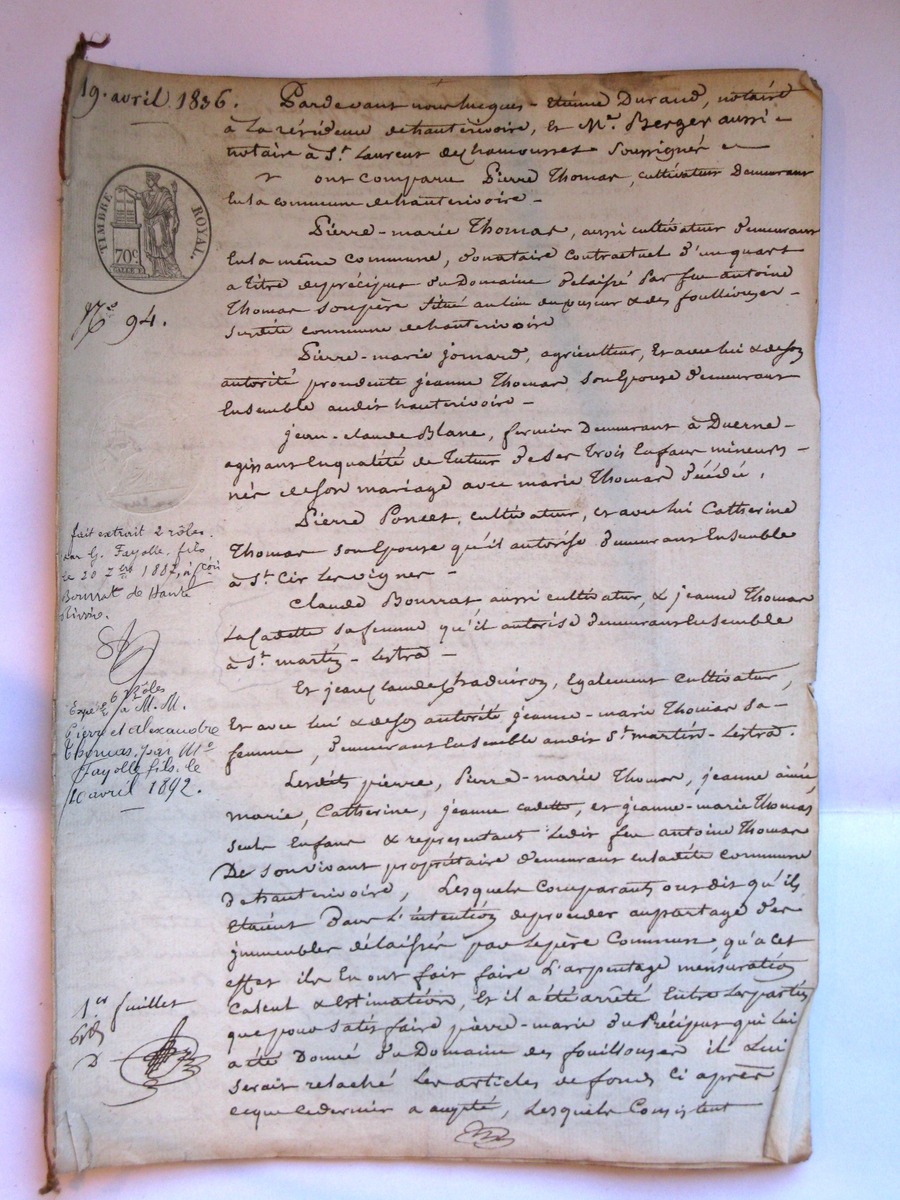 19. avril 1836.
Pardevant nous Jacques-Etienne Durand, notaire
à la résidence de hauterivoire, et Me Berger aussi
notaire à St Laurent de Chamousset soussignés
ont comparu Pierre Thomas, cultivateur demeurant
en la commune de hauterivoire -
Pierre-marie Thomas, aussi cultivateur demeurant
en la même commune, donataire contractuel d'un quart
a titre de précipus du Domaine délaissé par feu antoine
Thomas son père situé au lieu du et des fouillouses -
susdite commune de hauterivoire
Pierre-marie jomard, agriculteur, et avec lui & de son
autorité procedente jeanne Thomas son Epouse demeurant
Ensemble audit hauterivoire -
jean-claude Blanc, fermier demeurant à Duerne -
agissant en qualité de Tuteur de ses Trois Enfans mineurs -
nés de son mariage avec marie Thomas décédée,
Pierre Poncet, cultivateur, et avec lui Catherine
Thomas son Epouse qu'il autorise demeurant Ensemble
à St Cir les vignes -
Claude Bourrat aussi cultivateur, & jeanne Thomas
la Cadette sa femme qu'il autorise demeurant Ensemble
à St martin-Lestra -
Et jean claude, Egalement cultivateur,
Et avec lui & de son autorité jeanne-marie Thomas sa-
femme, demeurant Ensemble audit St martin-Lestra.
Lesdits pierre, Pierre-marie Thomas, jeanne ainée,
marie, Catherine, jeanne cadette, et jeanne-marie Thomas
seuls Enfans & representant ledit feu antoine Thomas
De son vivant propriétaire demeurant en ladite commune
De hauterivoire, Lesquels Comparants ont dit qu'ils
Etaient Dans L'intention de proceder au partage des
jmmeubles délaissés par le père Commun, qu'a cet
effet ils En ont fait faire L'arpentage mensuration
Calcul & estimation, Et il a été arrêté Entre les parties
que pour satisfaire pierre-marie du Précipus qui lui
a été Donné du Domaine des fouillouses il Lui
serait relaché les articles de fonds Ci après,
ce que ce dernier a accepté, Lesquels Consistent
TIMBRE ROYAL.
70c
No 94.
fait extrait 2 rôles.
par G. Fayolle fils
le 20 7bre 1887, à
Bourrat de Haute
Rivoire.
6 Rôles
Expéd. à M.M.
Pierre et alexandre
Thomas, par Me
Fayolle fils. le
10 avril 1892.
1er Juillet
D